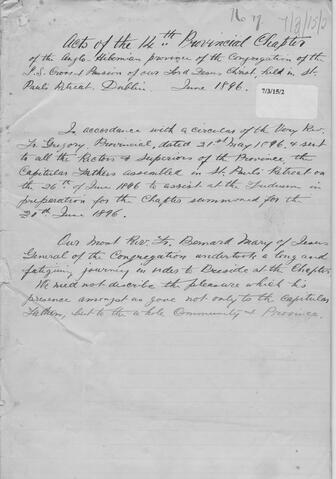 No 7 7/3/15/2
Acts of the 14th Provincial Chapter
of the Anglo-Hibernian province of the Congregation of the
S.S. Cross & Passion of our Lord Jesus Christ, held in St.
Paul's Retreat. Dublin. June 1896.
7/3/15/2
In accordance with a circular of the Very Rev.
Fr. Gregory, Provincial, dated 21st May 1896 & sent
to all the Rectors & Superiors of the Province, the
Capitular Fathers assembled in St. Paul's Retreat on
the 26th of June 1896 to assist at the Triduum in
preparation for the Chapter summoned for the
June 1896.
Our Most Rev. Fr. Bernard Mary of Jesus
General of the Congregation undertook a long and
fatiguing journey in order to Preside at the Chapter
We need not describe the pleasure which his
presence amongst us gave not only to the Capitular
Fathers, but to the whole Community & Province.